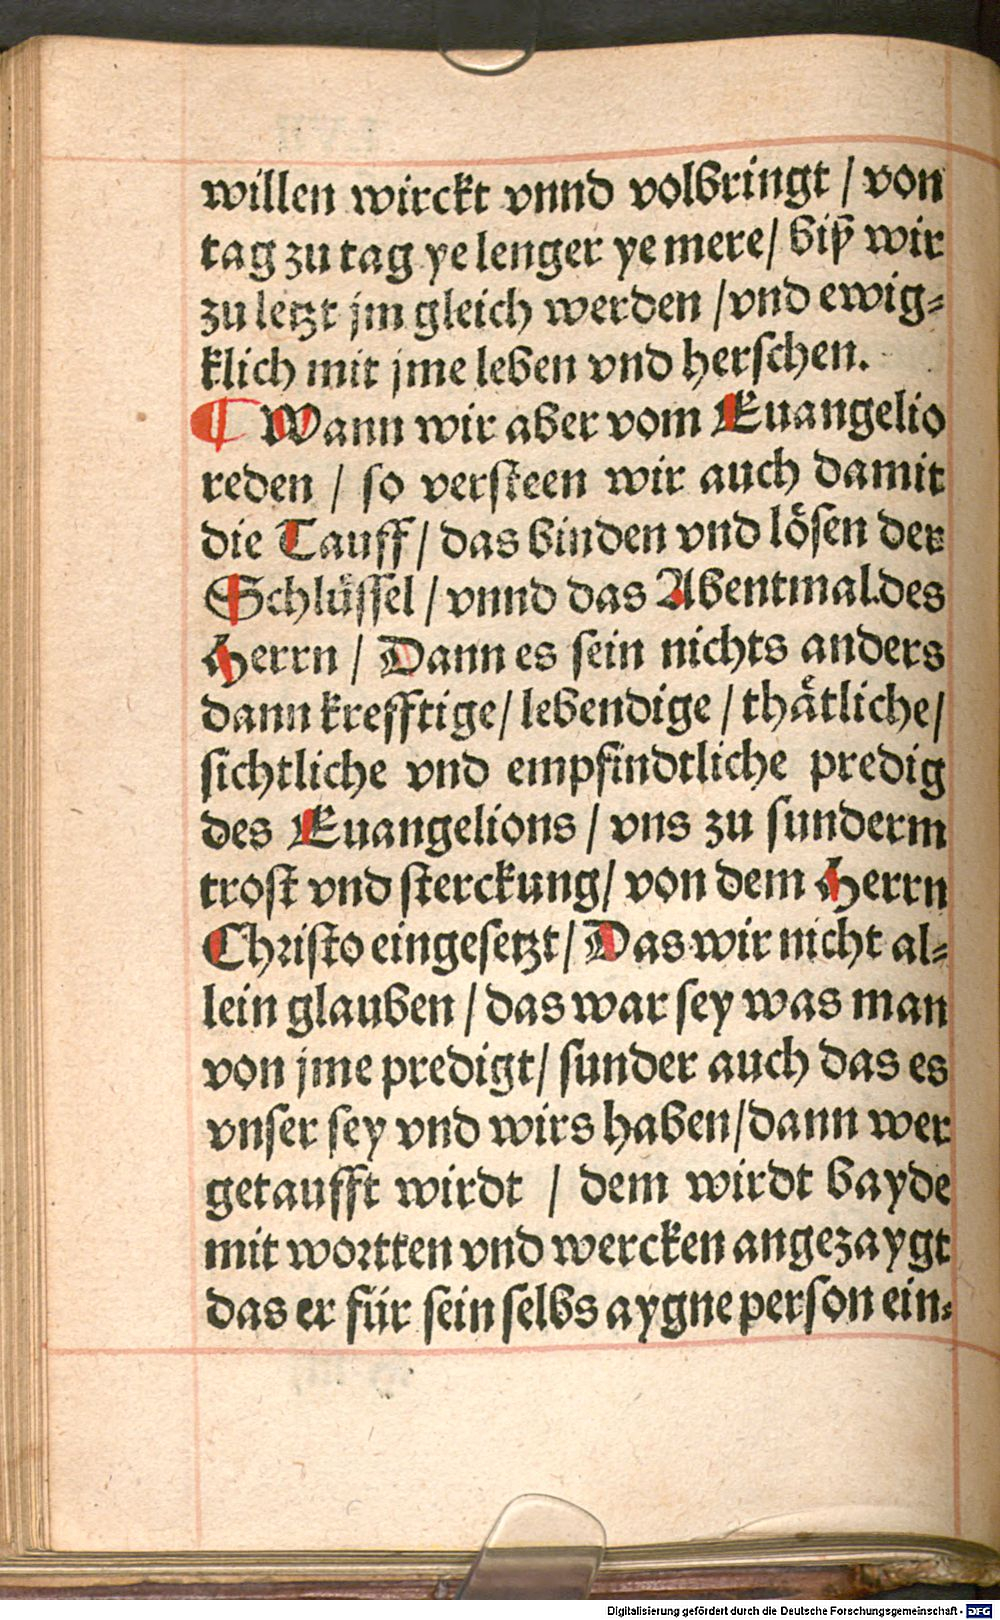 willen wirckt vnnd volbringt / von
tag zu tag ye lenger ye mere / biß wir
zu letzt jm gleich werden / vnd ewig⸗
klich mit jme leben vnd herschen.
¶ Wann wir aber vom Euangelio
reden / so versteen wir auch damit
die Tauff / das binden vnd lösen der
Schlüssel / vnnd das Abentmal des
Herrn / Dann es sein nichts anders
dann krefftige / lebendige / thätliche /
sichtliche vnd empfindtliche predig
des Euangelions / vns zu sunderm
trost vnd sterckung / von dem Herrn
Christo eingesetzt / Das wir nicht al⸗
lein glauben / das war sey was man
von jme predigt / sunder auch das es
vnser sey vnd wirs haben / dann wer
getaufft wirdt / dem wirdt bayde
mit wortten vnd wercken angezaygt
das er für sein selbs aygne person ein⸗
Digitalisierung gefördert durch die Deutsche Forschungsgemeinschaft - DFG